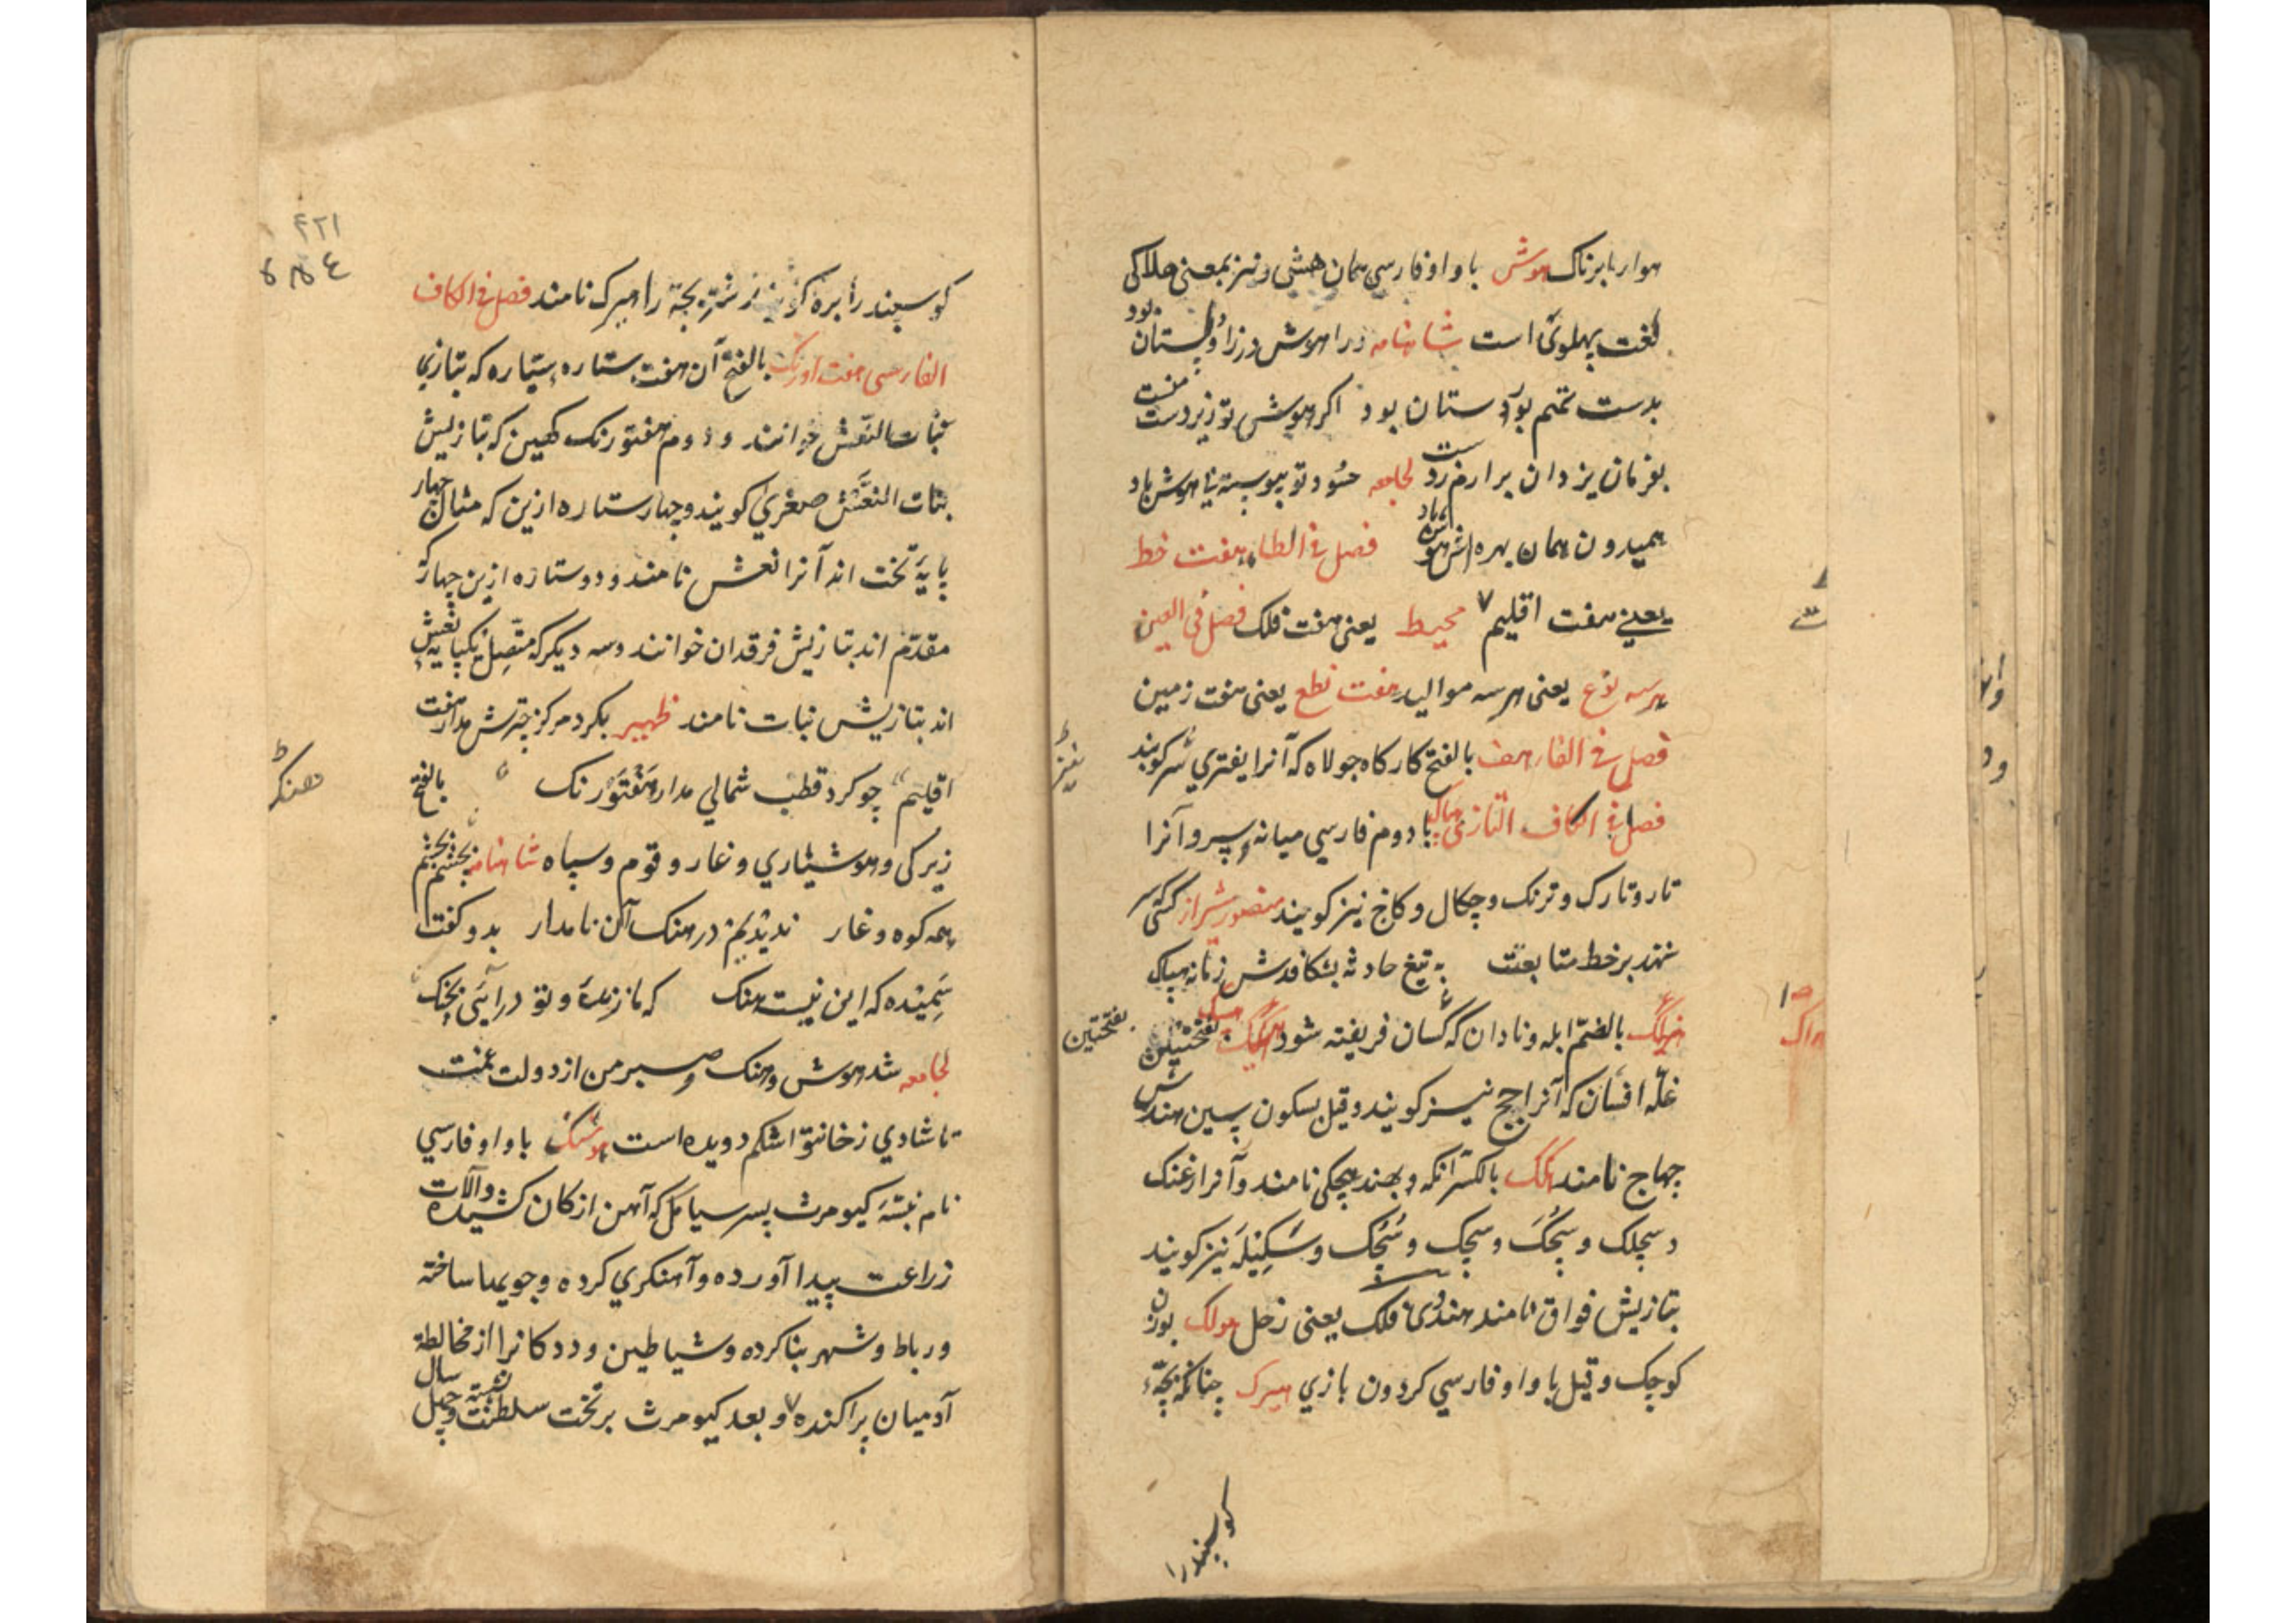 هوار بابرناک هوش باواو فارسی همان هشی و نیز بمعنی هلاکی
لغت پهلوی است شاهنامه ورا هوش در زاولستان بود
بدست تهم پور دستان بود اکر هوش تو زیر دست منست
بفرمان یزدان برارم ز دست لجامعه حسود تو پیوسته با هوش باد
همیدون همان بهره اش هوش باد فصل فی الطاء هفت خط
یعنے هفت اقلیم ۷ محیط یعنی هفت فلک فصل فی العین
هرسه نوع یعنی هرسه موالید هفت نطع یعنی هفت زمین
فصل فی الفاء هف بالفتح کارکاه جولاه که آنرا بفتری کویند
فصل فی الکاف التازی هپاک با دوم فارسی میانه سر و آنرا
تار و تارک و ترنک و چکال و کاج نیز کویند منصور شیراز کسی که سر
ننهد بر خط متابعت به تیغ حادثه بشکافدش زمانه هپاک
بالضم ابله و نادان که کسان فریفته شود هسک بفتحتین
بفتحتین
غله افشان که آنرا چج نیز کویند و قیل بسکون سین هندش
چهاج نامند هکک بالکسر آنکه بهند هچکی نامند و آنرا زغنک
و سچلک و سچک و سچک و سچک و سکیله نیز کویند
بتازیش فواق نامند هندوی فلک یعنی زحل هولک بوزن
کوچک و قیل باواو فارسی کردون بازی هیرک چنانکه بچهٔ
کوسپندرا
۴۲۱
کوسپند را بره کویند شتر بچه را هیرک نامند فصل فی الکاف
الفارسی هفت اورنک بالفتح آن هفت ستاره سیاره که بتازی
بنات النعش خوانند و دوم هفتورنک کهین که بتازیش
بنات النعش صغری کویند و چهار ستاره ازین که مثال چهار
پایه تخت اند آنرا نعش نامند و دو ستاره ازین چهار که
مقدم اند بتازیش فرقدان خوانند و سه دیکر که متصل یکپایه نعش
اند بتازیش بنات نامند ظهیر بکرد مرکز چترش مدار هفت
اقلیم چو کرد قطب شمالی مدار هفتورنک بالفتح
هنک
زیرکی و هوشیاری و غار و قوم و سپاه شاهنامه بجستم
همه کوه و غار ندیدیم در هنک آن نامدار بدو کفت
سمنده که این نیست هنک که ما زنده و تو در آیی بچنک
لجامعه شد هوش و هنک و صبر من از دولت غمت
تا شادی ز خانه اشکم دویده است هوشنک باواو فارسی
نام نبسهٔ کیومرث پسر سیامک که آهن از کان کشیده و آلات
زراعت پیدا آورده و آهنکری کرده و جویها ساخته
و رباط و شهر بنا کرده و شیاطین و ددکانرا از مخالطة
آدمیان پراکنده و بعد کیومرث بر تخت سلطنت نشسته و چهل سال